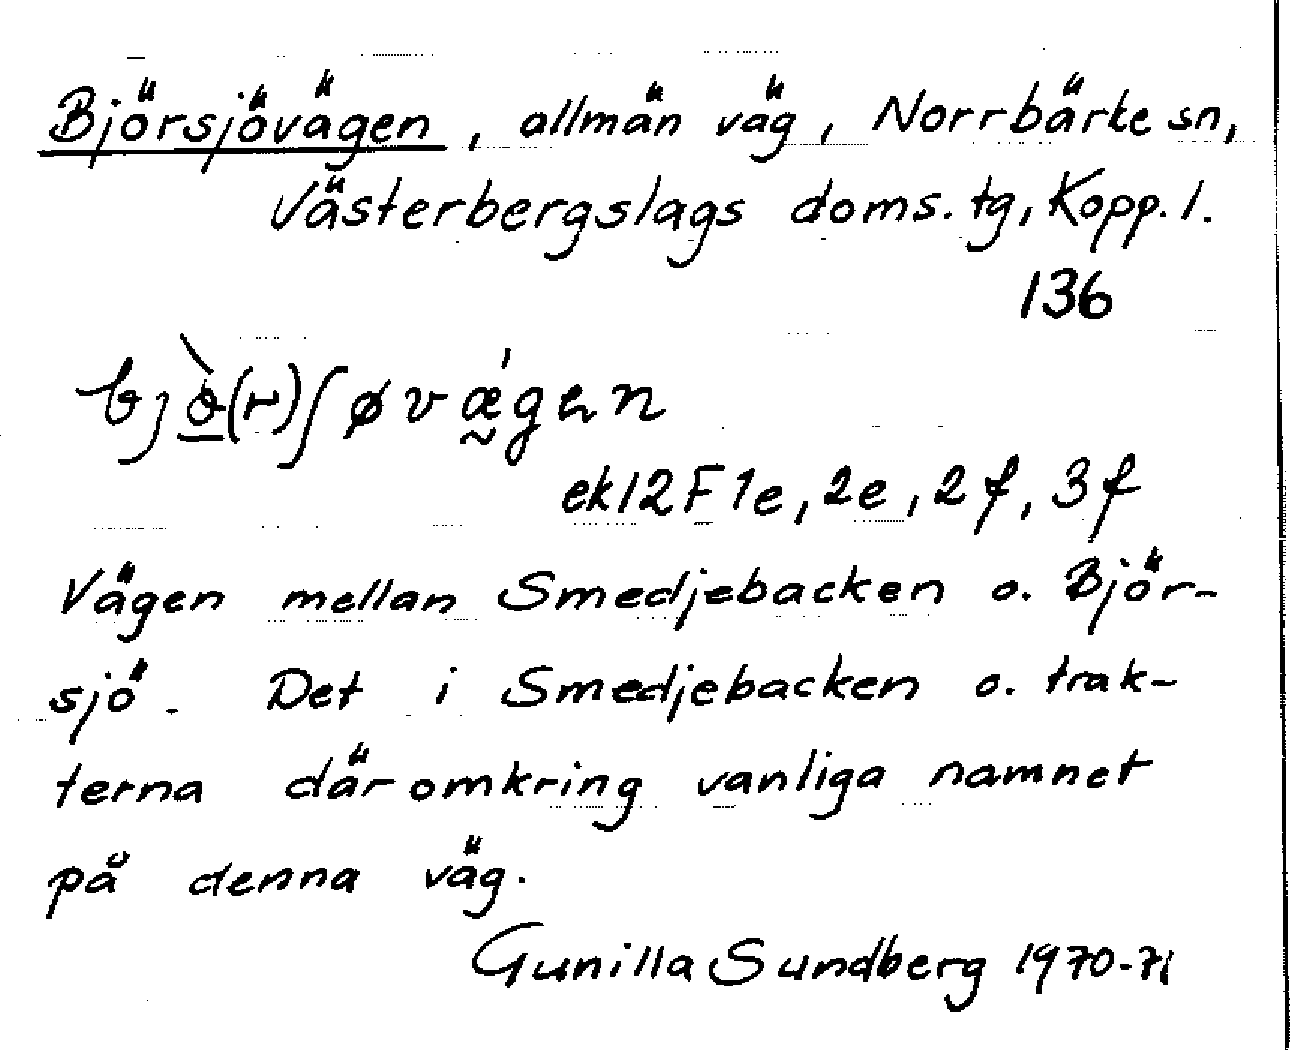 Björsjövägen, allmän väg, Norrbärke sn,
Västerbergslags doms. tg, Kopp. l.
136
bjò̠(r)ʃøvǽ̰gen
ek 12 F 1e, 2e, 2f, 3f
Vägen mellan Smedjebacken o. Björ-
sjö. Det i Smedjebacken o. trak-
terna däromkring vanliga namnet
på denna väg.
Gunilla Sundberg 1970-71